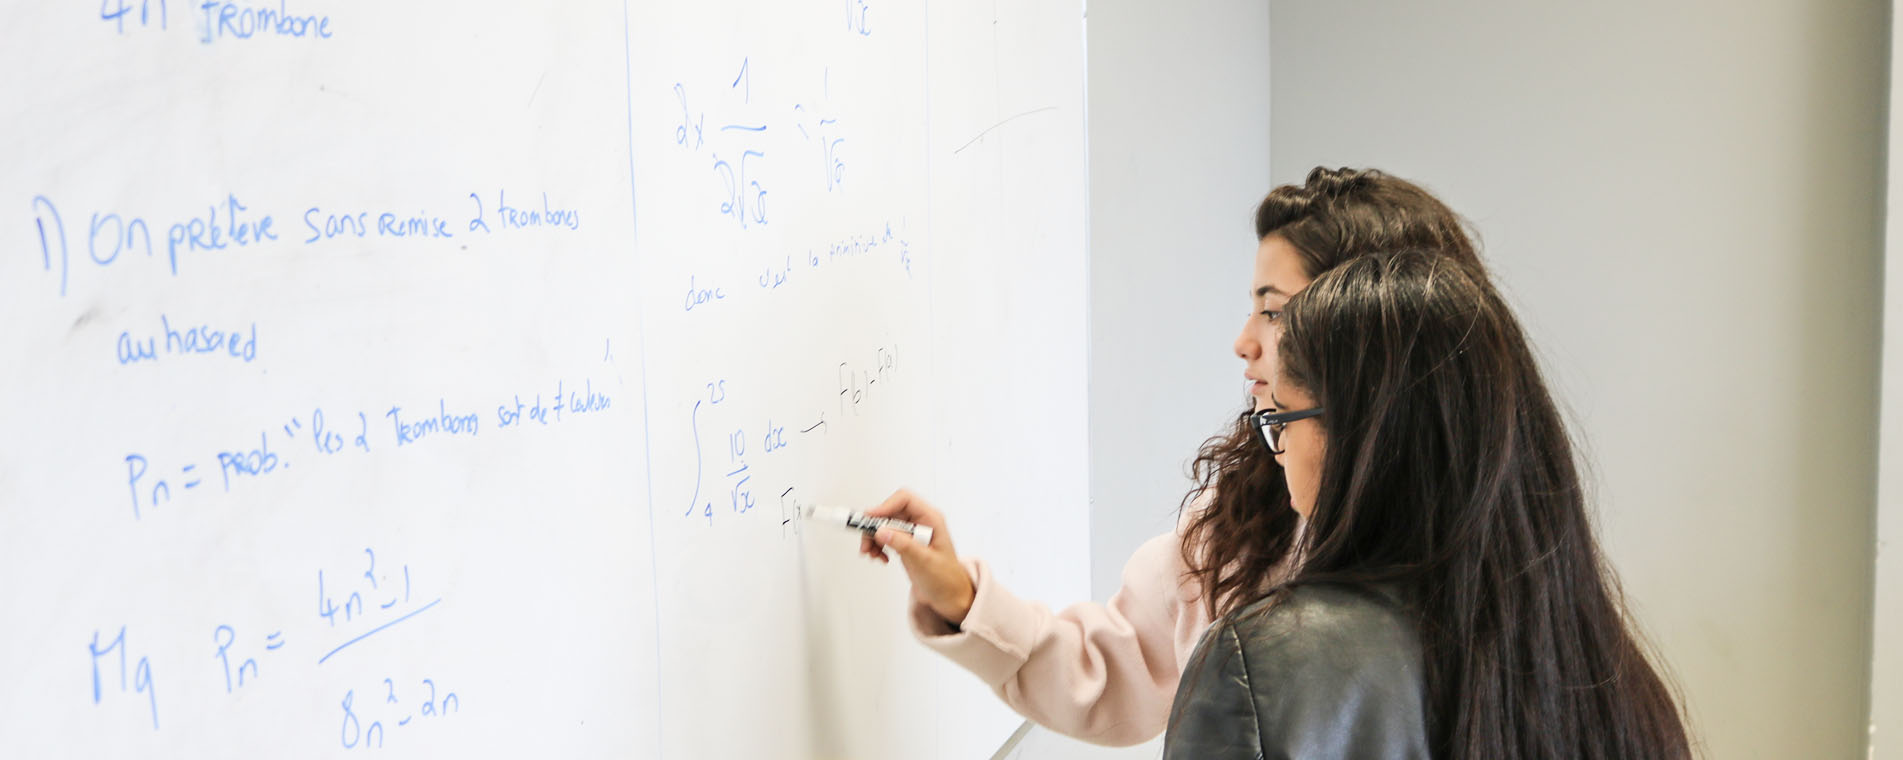 4n trombone
1) On prélève sans remise 2 trombones
au hasard
Pn = prob. "les 2 trombones sont de ≠ couleurs"
Mq Pn = 4n² - 1 / 8n² - 2n
√x
2x 1 / 2√x = 1 / √x
donc c'est la primitive de 1 / √x
∫ 4 25 10 / √x dx → F(b) - F(a)
F(x